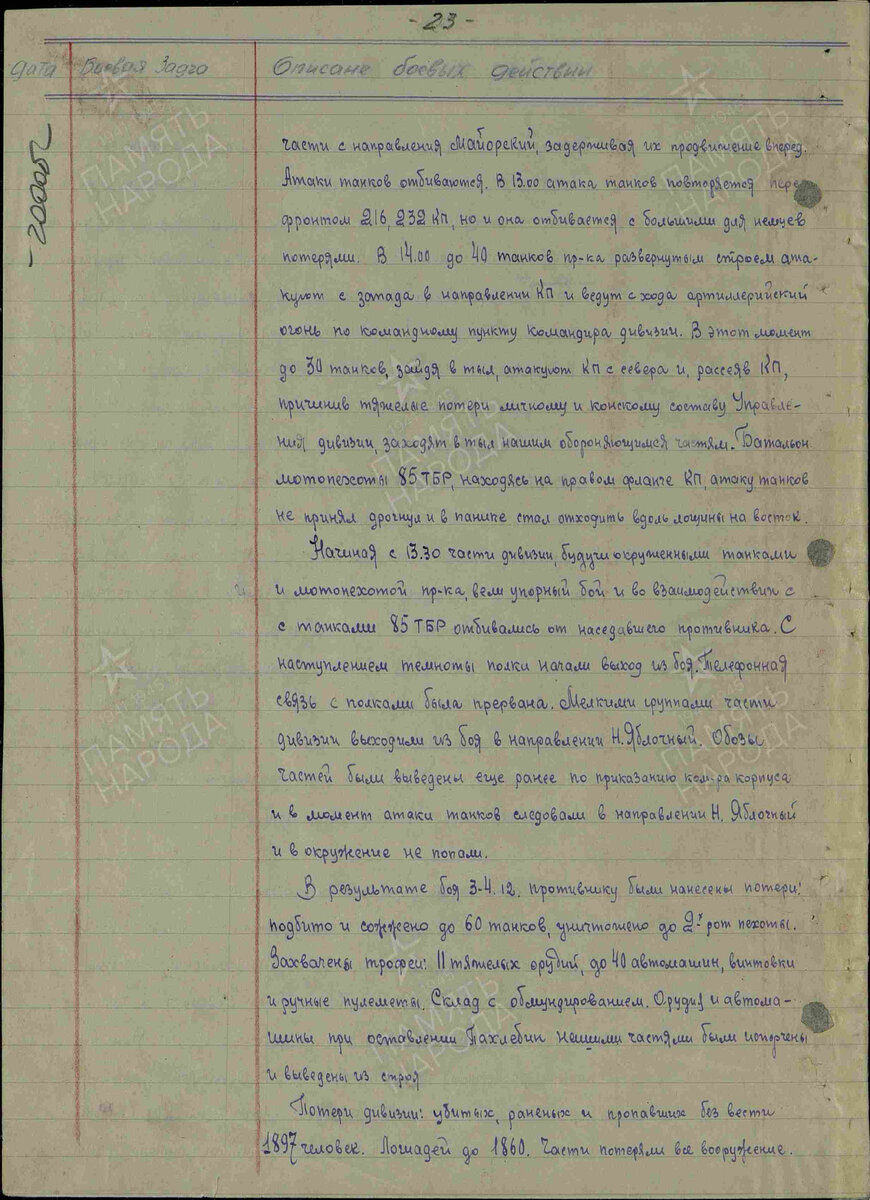 - 23 -
Дата Боевая Задча Описане боевых действии
части с направления Майорский, задерживая их продвижение вперед.
Атаки танков отбиваются. В 13.00 атака танков повторяется пере
фронтом 216, 232 КП, но и она отбивается с большими для немцев
потерями. В 14.00 до 40 танков пр-ка развернутым строем ата-
куют с запада в направлении КП и ведут с хода артиллерийский
огонь по командному пункту командира дивизии. В этот момент
до 30 танков, зайдя в тыл, атакуют КП с севера и, рассеяв КП,
причинив тяжелые потери личному и конскому составу Управле-
ния дивизии, заходят в тыл нашим обороняющимся частям. Батальон
мотопехоты 85 ТБР, находясь на правом фланге КП, атаку танков
не принял дрогнул и в панике стал отходить вдоль лощины на восток.
Начиная с 13.30 части дивизии, будучи окруженными танками
и мотопехотой пр-ка, вели упорный бой и во взаимодействии с
с танками 85 ТБР отбивались от наседавшего противника. С
наступлением темноты полки начали выход из боя. Телефонная
связь с полками была прервана. Мелкими группами части
дивизии выходили из боя в направлении Н. Яблочный. Обозы
частей были выведены еще ранее по приказанию ком-ра корпуса
и в момент атаки танков следовали в направлении Н. Яблочный
и в окружение не попали.
В результате боя 3-4.12. противнику были нанесены потери:
подбито и сожжено до 60 танков, уничтожено до 2х рот пехоты.
Захвачены трофеи: 11 тяжелых орудий, до 40 автомашин, винтовки
и ручные пулеметы. Склад с обмундированием. Орудия и автома-
шины при оставлении Пахлебин нашими частями были испорчены
и выведены из строя
Потери дивизии: убитых, раненых и пропавших без вести
1897 человек. Лошадей до 1860. Части потеряли все вооружение.
-20000Б2
ПАМЯТЬ
НАРОДА
ПАМЯТЬ
НАРОДА
ПАМЯТЬ
НАРОДА
ПАМЯТЬ
НАРОДА
ПАМЯТЬ
НАРОДА
ПАМЯТЬ
НАРОДА